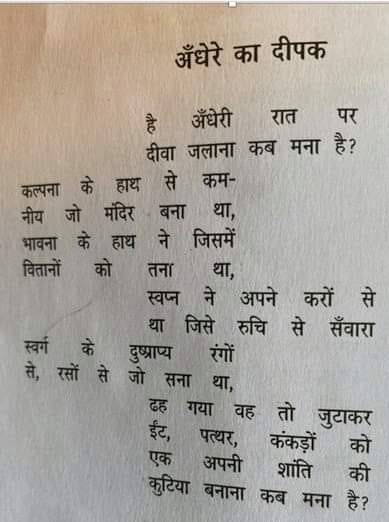 अँधेरे का दीपक
है अँधेरी रात पर
दीवा जलाना कब मना है?
कल्पना के हाथ से कम-
नीय जो मंदिर बना था,
भावना के हाथ ने जिसमें
वितानों को तना था,
स्वप्न ने अपने करों से
था जिसे रुचि से सँवारा
स्वर्ग के दुष्प्राप्य रंगों
से, रसों से जो सना था,
ढह गया वह तो जुटाकर
ईंट, पत्थर, कंकड़ों को
एक अपनी शांति की
कुटिया बनाना कब मना है?